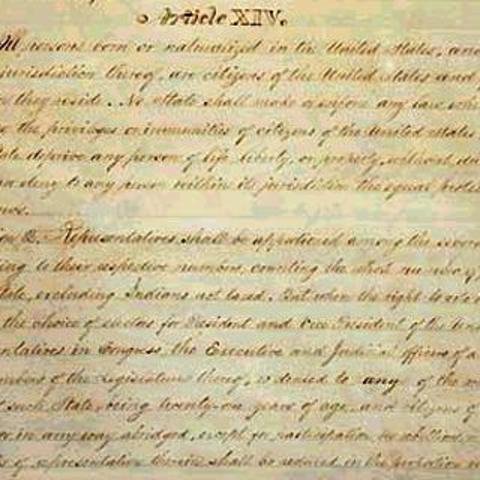 Article XIV.
All persons born or naturalized in the United States, and
jurisdiction thereof, are citizens of the United States and
they reside. No State shall make or enforce any law
the privileges or immunities of citizens of the United States
State deprive any person of life, liberty, or property, without
deny to any person within its jurisdiction the equal
Representatives shall be apportioned among the several
to their respective numbers, counting the whole number of
State, excluding Indians not taxed. But when the right to
the choice of electors for President and Vice President of the
in Congress, the Executive and Judicial officers of a
of the Legislature thereof, is denied to any of the
such State, being twenty-one years of age, and citizens of
in any way abridged, except for participation in rebellion,
of representation therein shall be reduced in the proportion